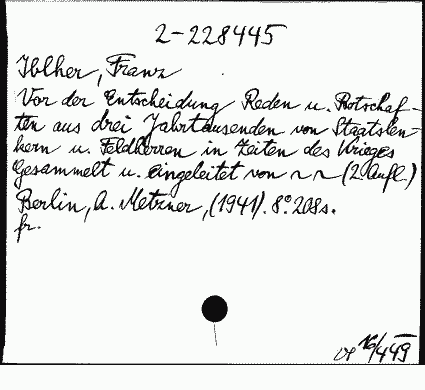 2-228445
Iblher, Franz
Vor der Entscheidung Reden u. Botschaf-
ten aus drei Jahrtausenden von Staatslen-
kern u. Feldherren in Zeiten des Krieges
Gesammelt u. eingeleitet von ~ ~ (2. Aufl.)
Berlin, A. Metzner, (1941). 8° 208 s.
fr.
16/449